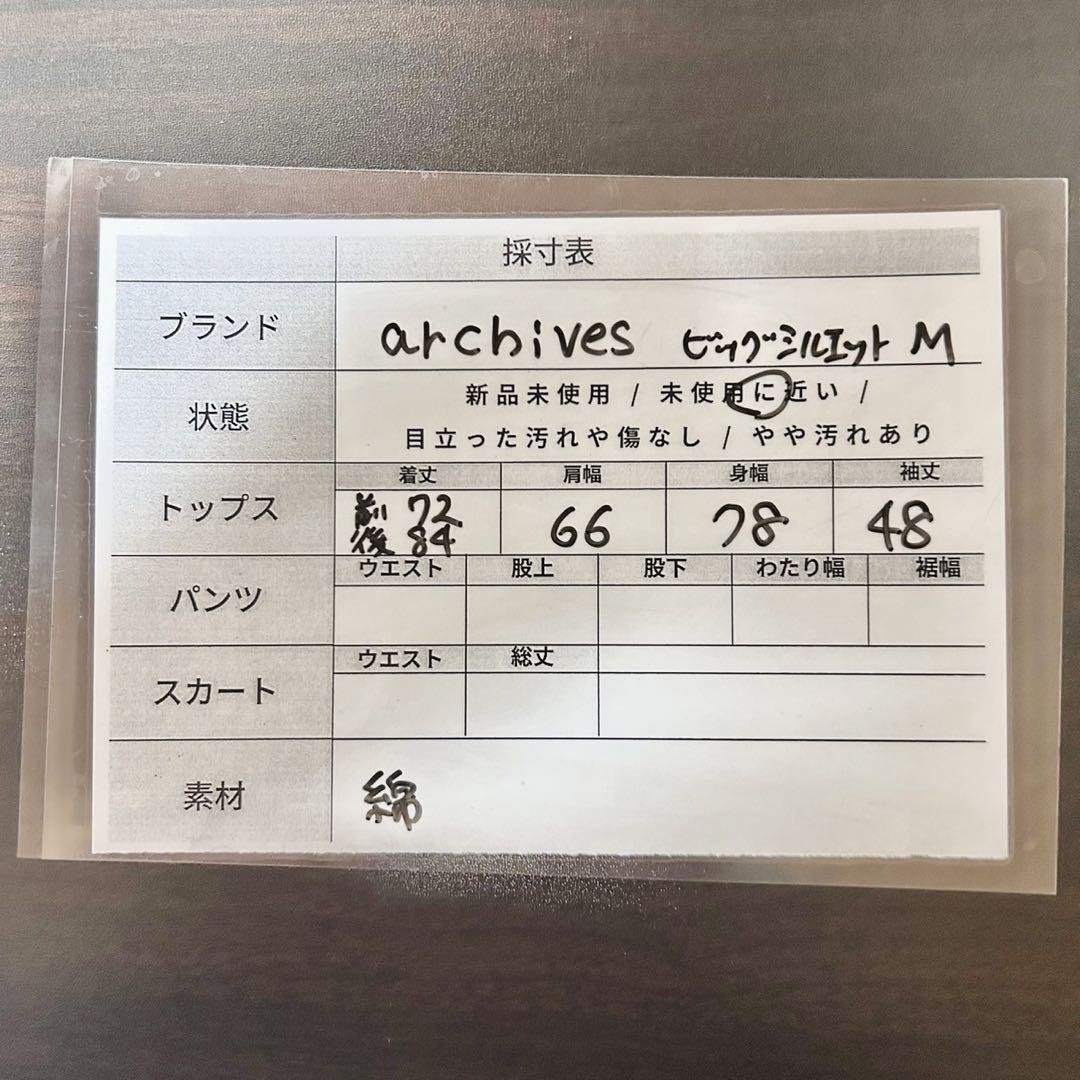 採寸表
ブランド archives ビッグシルエット M
状態 新品未使用 / 未使用に近い /
目立った汚れや傷なし / やや汚れあり
着丈 肩幅 身幅 袖丈
トップス 前 72 66 78 48
後 84
ウエスト 股上 股下 わたり幅 裾幅
パンツ
ウエスト 総丈
スカート
素材 綿